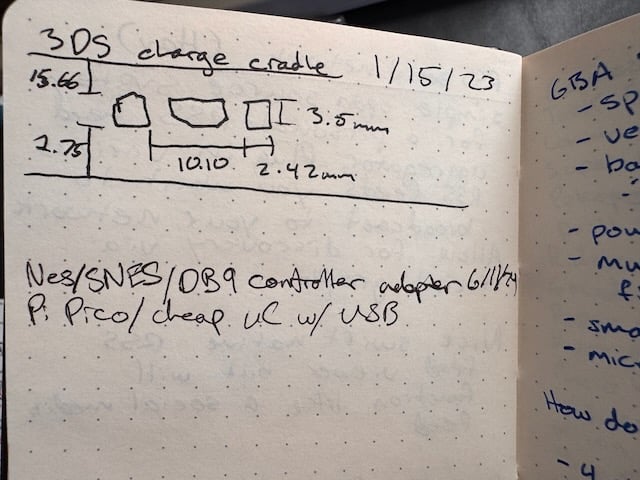 3DS charge cradle 1/15/23
15.66
3.5mm
2.75
10.10
2.42mm
Nes/SNES/DB9 controller adapter 6/11/24
Pi Pico/cheap uC w/ USB
GBA
- sp
- ve
- ba
- pow
- mu
f
- sma
- mic
How do
- 4